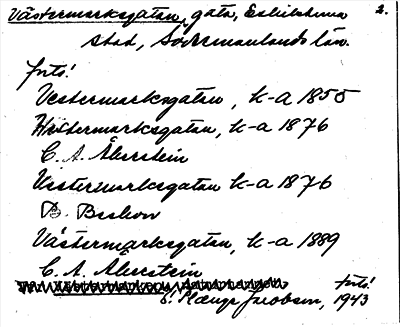 Västermarksgatan, gata, Eskilstuna 2.
stad, Södermanlands län.
foto!
Vestermarksgatan, k-a 1855
Westermarksgatan, k-a 1876
C. A. Åkerstein
Vestermarksgatan k-a 1876
B. Beskow
Västermarksgatan, k-a 1889
C. A. Åkerstein
foto!
Jacobson, 1943